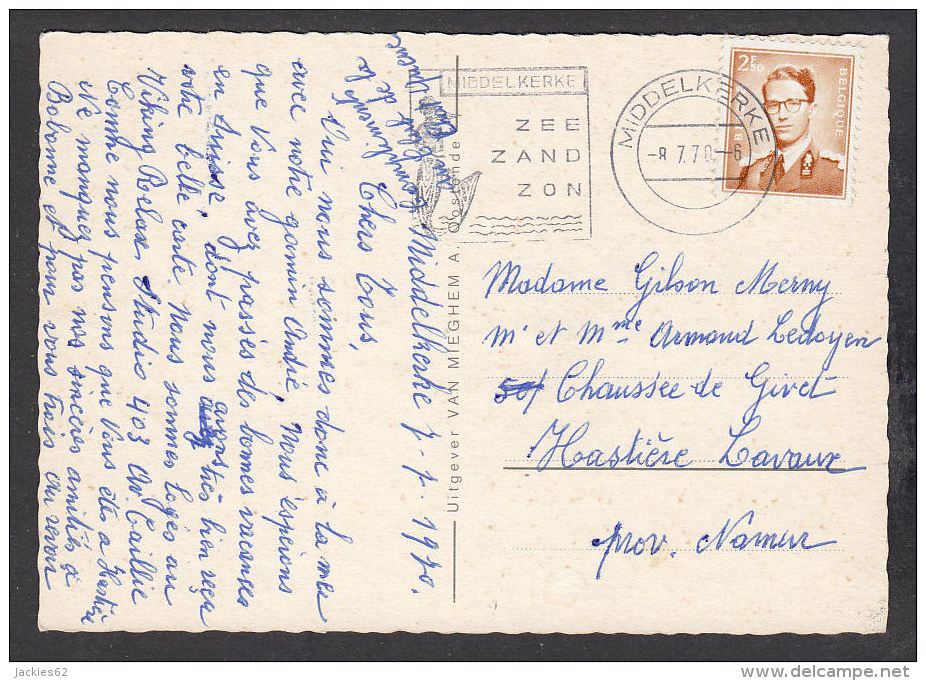 Middelkerke 7-7-1970.
Chers Tous,
Oui nous sommes donc à la mer
avec notre gamin André, Nous espérons
que Vous avez passés des bonnes vacances
en Suisse, dont nous avons très bien reçu
votre belle carte. Nous sommes logés au
Viking Relax, Studio 403 Av
Comme nous pensons que Vous êtes à Hastière
Ne manquez pas nos sincères amitiés à
Bobonne et pour vous trois au revoir
Uitgever VAN MIEGHEM A. Oostende
MIDDELKERKE
ZEE
ZAND
ZON
MIDDELKERKE
-8.7.70-6
2F50
BELGIQUE
Madame Gilson Merny
Mr et Mme Armand Ledoyen
Chaussée de Givet
Hastière Lavaux
prov. Namur
jackies62
www.delcampe.net